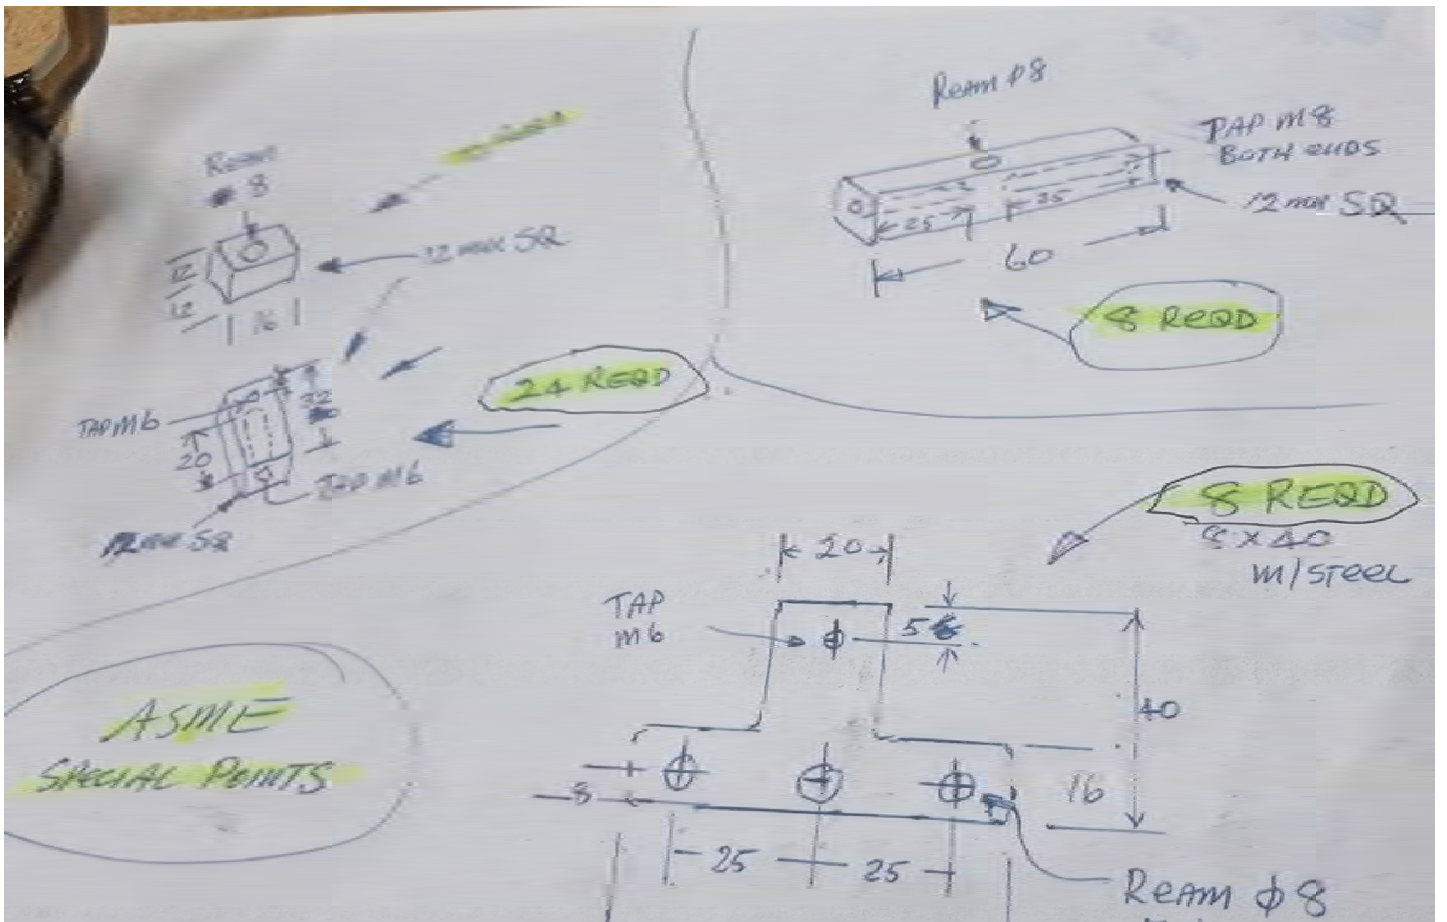 Ream
8
12
12
16
12 mm SQ
TAP M6
20
32
TAP M6
12 mm SQ
24 REQD
Ream φ8
TAP M8
BOTH ENDS
12 mm SQ
25
25
60
8 REQD
8 REQD
8 x 40
M/STEEL
20
TAP
M6
5
40
16
8
25
25
Ream φ8
ASME
SPECIAL POINTS